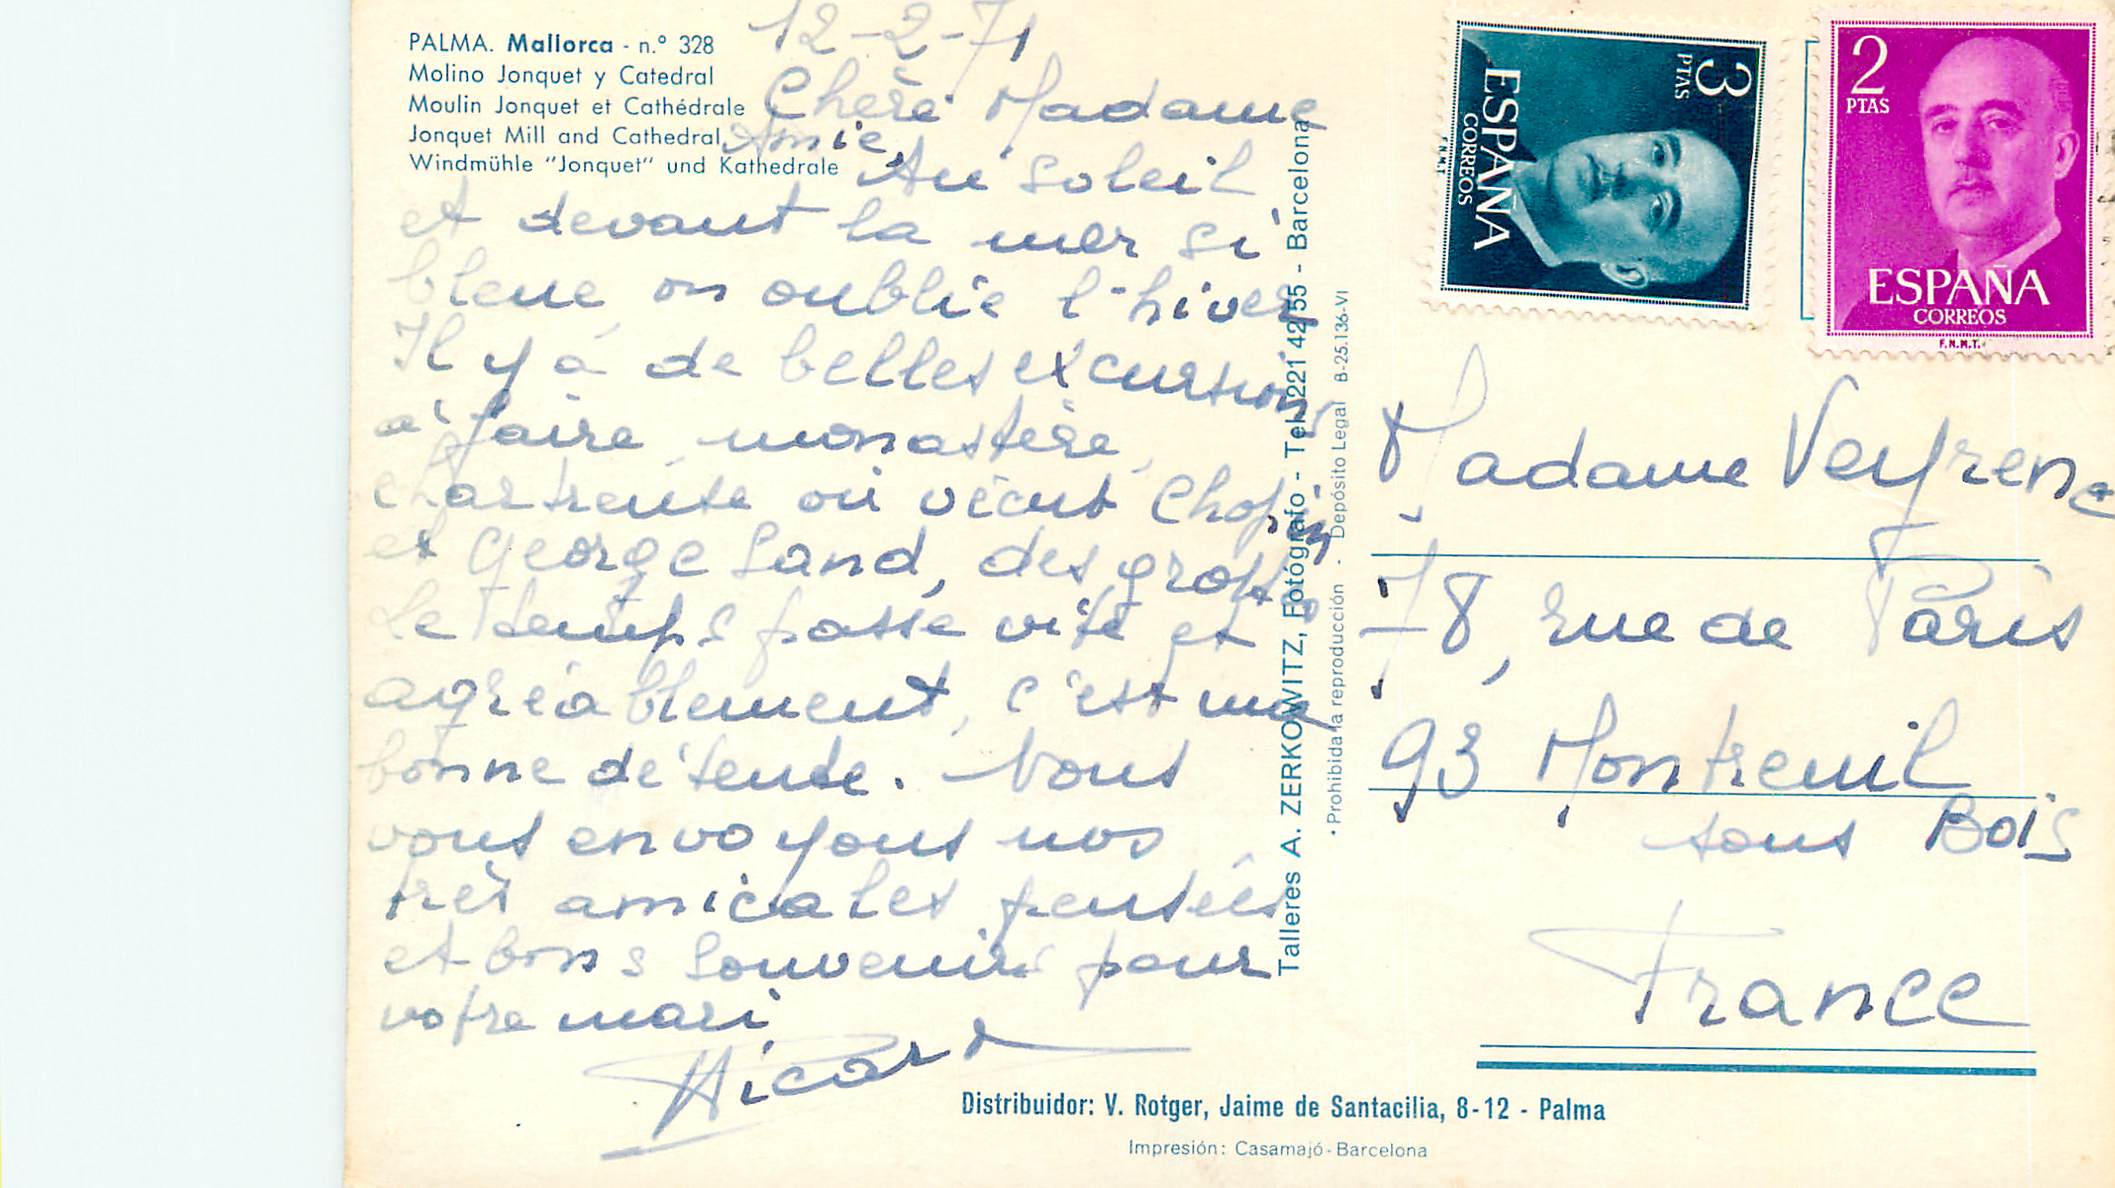 PALMA. Mallorca - n.º 328
Molino Jonquet y Catedral
Moulin Jonquet et Cathédrale
Jonquet Mill and Cathedral
Windmühle "Jonquet" und Kathedrale
12-2-71
Chère Madame
Amie,
Au soleil
et devant la mer si
bleue on oublie l'hiver
Il y à de belles excursions
à faire, monastère,
chartreuse où vécut Chopin
et George Sand, des grottes
Le temps passe vite et
agréablement, c'est une
bonne détente. Nous
vous envoyons nos
très amicales pensées
et bons souvenirs pour
votre mari
Talleres A. ZERKOWITZ, Fotógrafo - Tel. 221 42 55 - Barcelona
• Prohibida la reproducción - Depósito Legal B-25.136-VI
3
PTAS
ESPAÑA
CORREOS
F.N.M.T.
2
PTAS
ESPAÑA
CORREOS
F.N.M.T.
Madame Veyrenc
78, rue de Paris
93 Montreuil
sous Bois
France
Distribuidor: V. Rotger, Jaime de Santacilia, 8-12 - Palma
Impresión: Casamajó - Barcelona